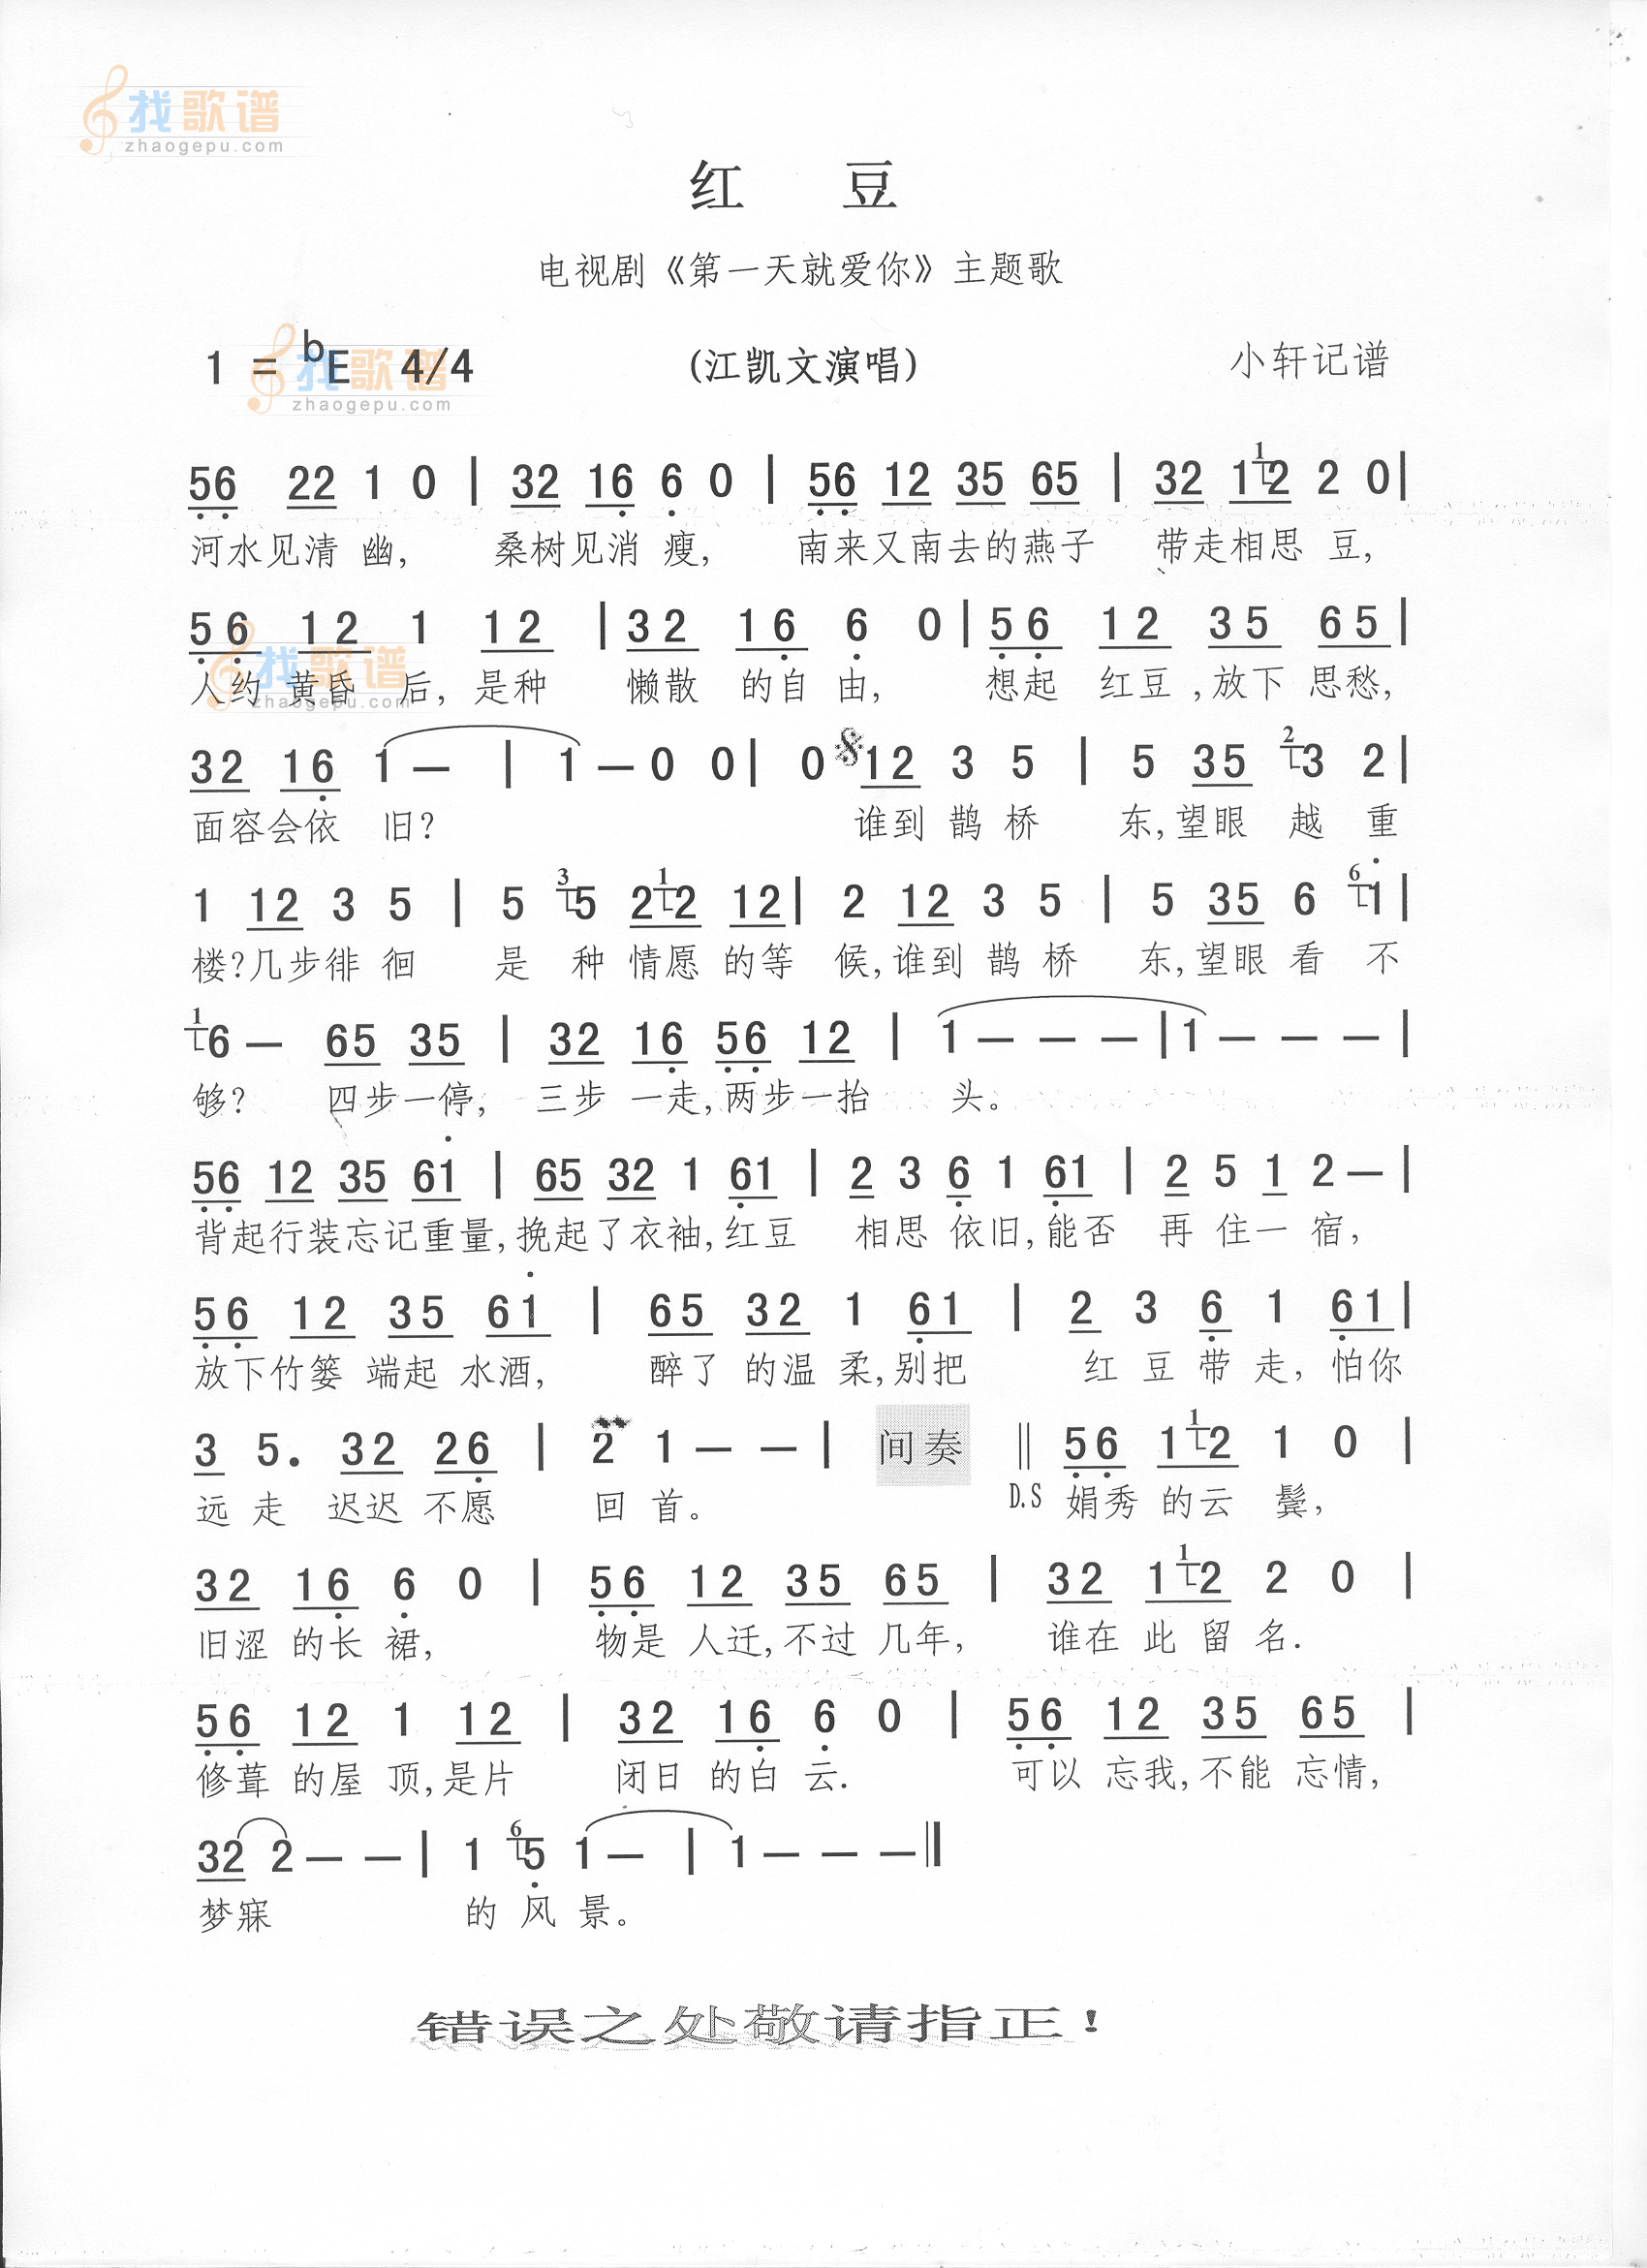 找歌谱
zhaogepu.com
红 豆
电视剧《第一天就爱你》主题歌
1 = bE 4/4 (江凯文演唱) 小轩记谱
找歌谱
zhaogepu.com
56 22 1 0 | 32 16 6 0 | 56 12 35 65 | 32 1 1 2 2 0 |
河水见清 幽, 桑树见消 瘦, 南来又南去的燕子 带走相思 豆,
56 12 1 12 | 32 16 6 0 | 56 12 35 65 |
人约 黄昏 后, 是种 懒散 的自 由, 想起 红豆 ,放下 思愁,
找歌谱
zhaogepu.com
32 16 1 — | 1 — 0 0 | 0 12 3 5 | 5 35 2 3 2 |
面容会依 旧? 谁到 鹊 桥 东,望眼 越 重
1 12 3 5 | 5 3 5 2 1 2 12 | 2 12 3 5 | 5 35 6 6 1 |
楼?几步徘 徊 是 种 情愿 的等 候,谁到 鹊 桥 东,望眼 看 不
1 6 — 65 35 | 32 16 56 12 | 1 — — — | 1 — — — |
够? 四步一停, 三步 一走,两步一抬 头。
56 12 35 61 | 65 32 1 61 | 2 3 6 1 61 | 2 5 1 2 — |
背起行装忘记重量,挽起了衣袖,红豆 相思 依旧,能否 再 住一 宿,
56 12 35 61 | 65 32 1 61 | 2 3 6 1 61 |
放下竹篓 端起 水酒, 醉了 的温 柔,别把 红 豆 带 走, 怕你
3 5. 32 26 | 2 1 — — | 间奏 ‖ 56 1 1 2 1 0 |
远 走 迟迟 不愿 回 首。 D.S 娟秀 的云 鬓,
32 16 6 0 | 56 12 35 65 | 32 1 1 2 2 0 |
旧涩 的长 裙, 物是 人迁,不过 几年, 谁在 此 留 名.
56 12 1 12 | 32 16 6 0 | 56 12 35 65 |
修葺 的屋 顶,是片 闭日 的白 云. 可以 忘我,不能 忘情,
32 2 — — | 1 6 5 1 — | 1 — — — ‖
梦寐 的 风 景。
错误之处敬请指正！